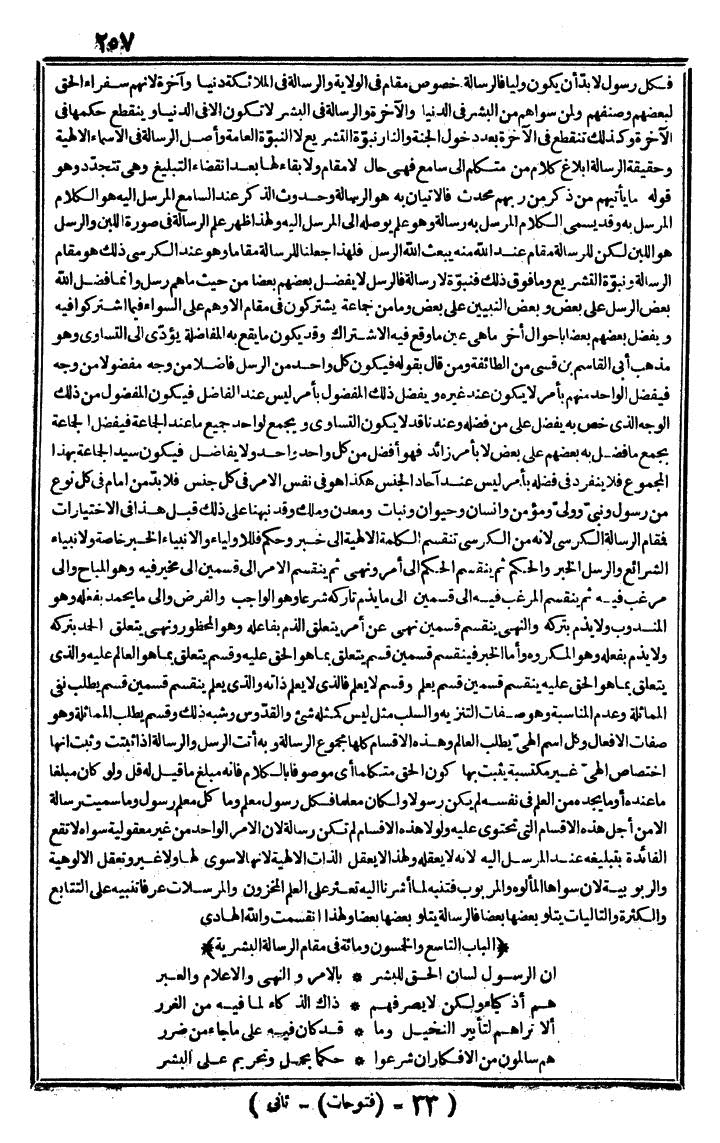 ٢٥٧
فكل رسول لا بدّ أن يكون وليا فالرسالة خصوص مقام فى الولاية والرسالة فى الملائكة دنيا وآخرة لانهم سفراء الحق
لبعضهم وصنفهم ولمن سواهم من البشر فى الدنيا والآخرة والرسالة فى البشر لا تكون الا فى الدنيا وينقطع حكمها فى
الآخرة وكذلك تنقطع فى الآخرة بعد دخول الجنة والنار نبوّة التشريع لا النبوّة العامة وأصل الرسالة فى الاسماء الالهية
وحقيقة الرسالة ابلاغ كلام من متكلم الى سامع فهى حال لا مقام ولا بقاء لها بعد انقضاء التبليغ وهى تتجدّد وهو
قوله ما يأتيهم من ذكر من ربهم محدث فالاتيان به هو الرسالة وحدوث الذكر عند السامع المرسل اليه هو الكلام
المرسل به وقد يسمى الكلام المرسل به رسالة وهو علم يوصله الى المرسل اليه ولهذا ظهر علم الرسالة فى صورة اللبن والرسل
هو اللبن لكن للرسالة مقام عند الله منه يبعث الله الرسل فلهذا جعلنا للرسالة مقاما وهو عند الكرسى ذلك هو مقام
الرسالة ونبوّة التشريع وما فوق ذلك فنبوّة لا رسالة فالرسل لا يفضل بعضهم بعضا من حيث ما هم رسل وانما فضل الله
بعض الرسل على بعض و بعض النبيين على بعض وما من جماعة يشتركون فى مقام الا وهم على السواء فيما اشتركوا فيه
و يفضل بعضهم بعضا باحوال أخر ما هى عين ما وقع فيه الاشتراك وقد يكون ما يقع به المفاضلة يؤدّى الى التساوى وهو
مذهب أبى القاسم بن قسى من الطائفة ومن قال بقوله فيكون كل واحد من الرسل فاضلا من وجه مفضولا من وجه
فيفضل الواحد منهم بأمر لا يكون عند غيره و يفضل ذلك المفضول بأمر ليس عند الفاضل فيكون المفضول من ذلك
الوجه الذى خص به يفضل على من فضله وعندنا قد لا يكون التساوى و يجمع لواحد جميع ما عند الجماعة فيفضل الجماعة
بجمع ما فضل به بعضهم على بعض لا بأمر زائد فهو أفضل من كل واحد واحد ولا يفاضل فيكون سيد الجماعة بهذا
المجموع فلا ينفرد فى فضله بأمر ليس عند آحاد الجنس هكذا هو فى نفس الامر فى كل جنس فلا بدّ من امام فى كل نوع
من رسول ونبىّ وولىّ ومؤمن وانسان وحيوان ونبات ومعدن وملك وقد نبهنا على ذلك قبل هذا فى الاختيارات
فمقام الرسالة الكرسى لانه من الكرسى تنقسم الكلمة الالهية الى خبر وحكم فللاولياء والانبياء الخبر خاصة ولانبياء
الشرائع والرسل الخبر والحكم ثم ينقسم الحكم الى أمر ونهى ثم ينقسم الامر الى قسمين الى مخير فيه وهو المباح والى
مرغب فيه ثم ينقسم المرغب فيه الى قسمين الى ما يذم تاركه شرعا وهو الواجب والفرض والى ما يحمد بفعله وهو
المندوب ولا يذم بتركه والنهى ينقسم قسمين نهى عن أمر يتعلق الذم بفاعله وهو المحظور ونهى يتعلق الحمد بتركه
ولا يذم بفعله وهو المكروه وأما الخبر فينقسم قسمين قسم يتعلق بما هو الحق عليه وقسم يتعلق بما هو العالم عليه والذى
يتعلق بما هو الحق عليه ينقسم قسمين قسم يعلم وقسم لا يعلم فالذى لا يعلم ذاته والذى يعلم ينقسم قسمين قسم يطلب نفى
المماثلة وعدم المناسبة وهو صفات التنزيه والسلب مثل ليس كمثله شئ والقدّوس وشبه ذلك وقسم يطلب المماثلة وهو
صفات الافعال وكل اسم الهىّ يطلب العالم وهذه الاقسام كلها مجموع الرسالة و به أتت الرسل والرسالة اذا ثبتت وثبت انها
اختصاص الهىّ غير مكتسبة يثبت بها كون الحق متكلما أى موصوفا بالكلام فانه مبلغ ما قيل له قل ولو كان مبلغا
ما عنده أو ما يجده من العلم فى نفسه لم يكن رسولا ولكان معلما فكل رسول معلم وما كل معلم رسول وما سميت رسالة
الا من أجل هذه الاقسام التى تحتوى عليه ولولا هذه الاقسام لم تكن رسالة لان الامر الواحد من غير معقولية سواه لا تقع
الفائدة بتبليغه عند المرسل اليه لانه لا يعقله ولهذا لا يعقل الذات الالهية لانها لا سوى لها ولا غير وتعقل الالوهية
والربوبية لان سواها المألوه والمربوب فتنبه لما أشرنا اليه تعثر على العلم المخزون والمرسلات عرفا تنبيه على التتابع
والكثرة والتاليات يتلو بعضها بعضا فالرسالة يتلو بعضها بعضا ولهذا انقسمت والله الهادى
﴿الباب التاسع والخمسون ومائة فى مقام الرسالة البشرية﴾
ان الرسول لسان الحق للبشر * بالامر و النهى والاعلام والعبر
هم أذكياء ولكن لا يصرفهم * ذاك الذكاء لما فيه من الغرر
ألا تراهم لتأبير النخيل وما * قد كان فيه على ماجاء من ضرر
هم سالمون من الافكار ان شرعوا * حكما بحل وتحريم على البشر
(٣٣ - (فتوحات) - ثانى)